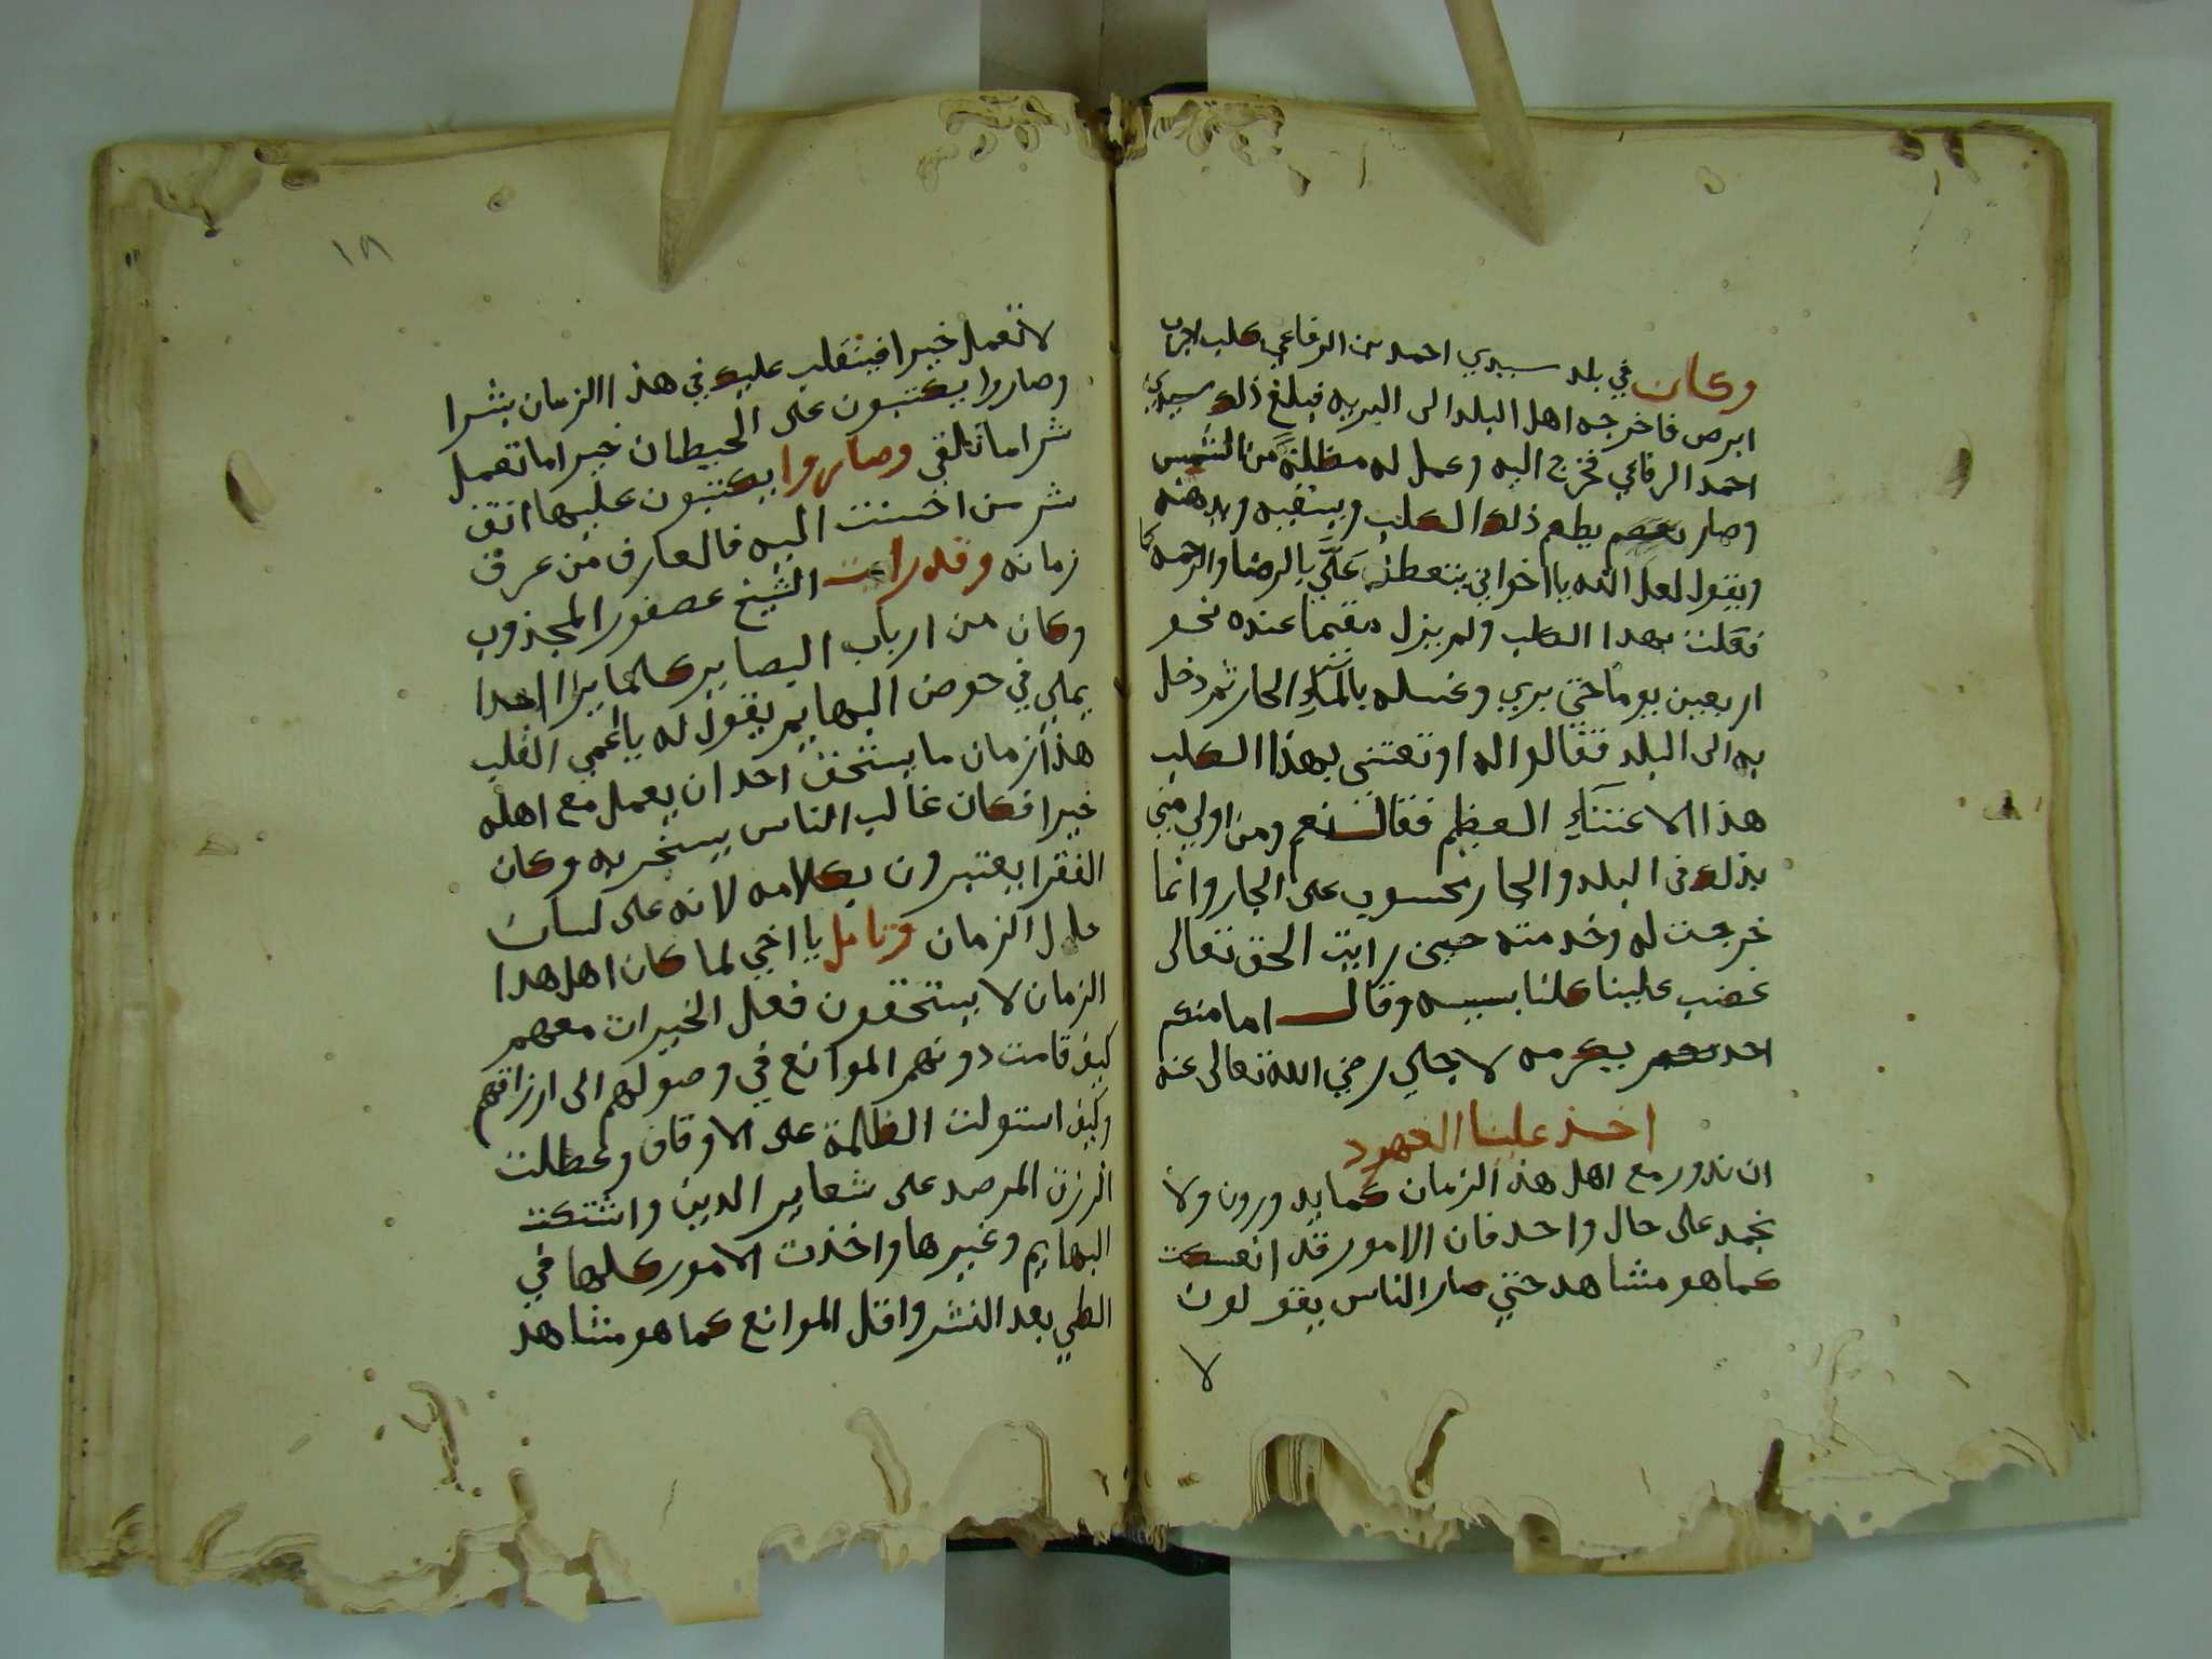 وكان في بلد سيدي احمد بن الرفاعي كلب اجرب
ابرص فاخرجه اهل البلد الى البريه فبلغ ذلك سيدي
احمد الرفاعي فخرج اليه وعمل له مظلة من الشمس
وصار يطعم ذلك الكلب ويسقيه ويدهنه
ويقول لعل الله يا اخواني يتعطف علي بالرضا والرحمه كما
فعلت بهدا الكلب ولم يزل مقيما عنده نحو
اربعين يوما حتى بري وغسله بالماء الحار ثم دخل
به الى البلد فقالوا له او تعتني بهذا الكلب
هذا الاعتناء العظيم فقال نعم ومن اولي مني
بذلك في البلد والجار محسوب على الجار وانما
خرجت له وخدمته حين رايت الحق تعالى
غضب علينا كلنا بسببه وقال اما منكم
احد يكرمه لاجلي رضي الله تعالى عنه
اخذ علينا العهود
ان ندور مع اهل هذ الزمان كما يدورون ولا
نجمد على حال واحد فان الامور قد انعكست
كما هو مشاهد حتي صار الناس يقولون
لا
١٨
لا تعمل خيرا فينقلب عليك في هذ االزمان بشرا
وصاروا يكتبون على الحيطان خيرا ما تعمل
شرا ما تلقي وصاروا يكتبون عليها اتق
شر من احسنت اليه فالعارف من عرف
زمانه وقد رايت الشيخ عصفور المجذوب
وكان من ارباب البصاير كلما يرا احدا
يملي في حوض البهايم يقول له يا اعمي القلب
هذا زمان ما يستحق احد ان يعمل مع اهله
خيرا فكان غالب الناس يسخر به وكان
الفقرا يعتبرون بكلامه لانه على لسان
حال الزمان وتامل يا اخي لما كان اهل هدا
الزمان لا يستحقون فعل الخيرات معهم
كيف قامت دونهم الموانع في وصولهم الى ارزاقهم
وكيف استولت الظالمة على الاوقاف وعطلت
الرزق المرصد على شعاير الدين واشتكت
البهايم وغيرها واخذت الامور كلها في
الطي بعد النشر واقل الموانع كما هو مشاهد